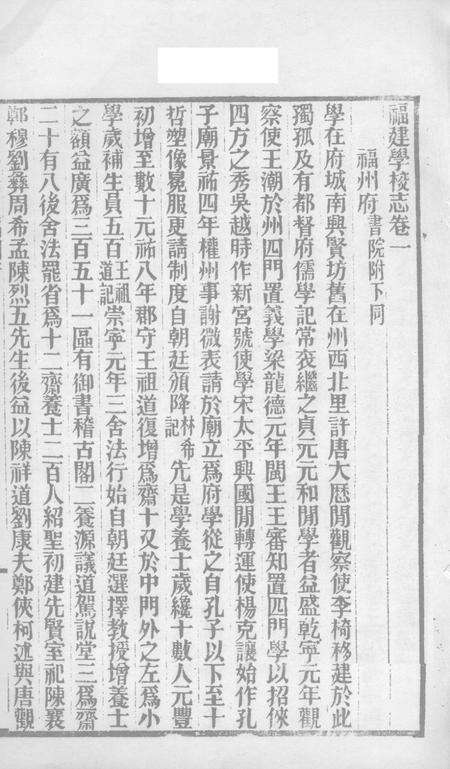 福建學校志卷一
福州府書院附下同
學在府城南興賢坊舊在州西北里許唐大厯閒觀察使李椅移建於此
獨孤及有都督府儒學記常袞繼之貞元元和閒學者益盛乾寧元年觀
察使王潮於州四門置義學梁龍德元年閩王王審知置四門學以招俠
四方之秀吳越時作新宮號使學宋太平興國閒轉運使楊克讓始作孔
子廟景祐四年權州事謝微表請於廟立為府學從之自孔子以下至十
哲塑像冕服更請制度自朝廷頒降林希記先是學養士歲纔十數人元豐
初增至數十元祐八年郡守王祖道復增為齋十又於中門外之左為小
學歲補生員五百王祖道記崇寧元年三舍法行始自朝廷選擇教授增養士
之額益廣為三百五十一區有御書稽古閣二養源議道駕說堂三為齋
二十有八後舍法罷省為十二齋養士二百人紹聖初建先賢室祀陳襄
鄭穆劉彝周希孟陳烈五先生後益以陳祥道劉康夫鄭俠柯述與唐觀